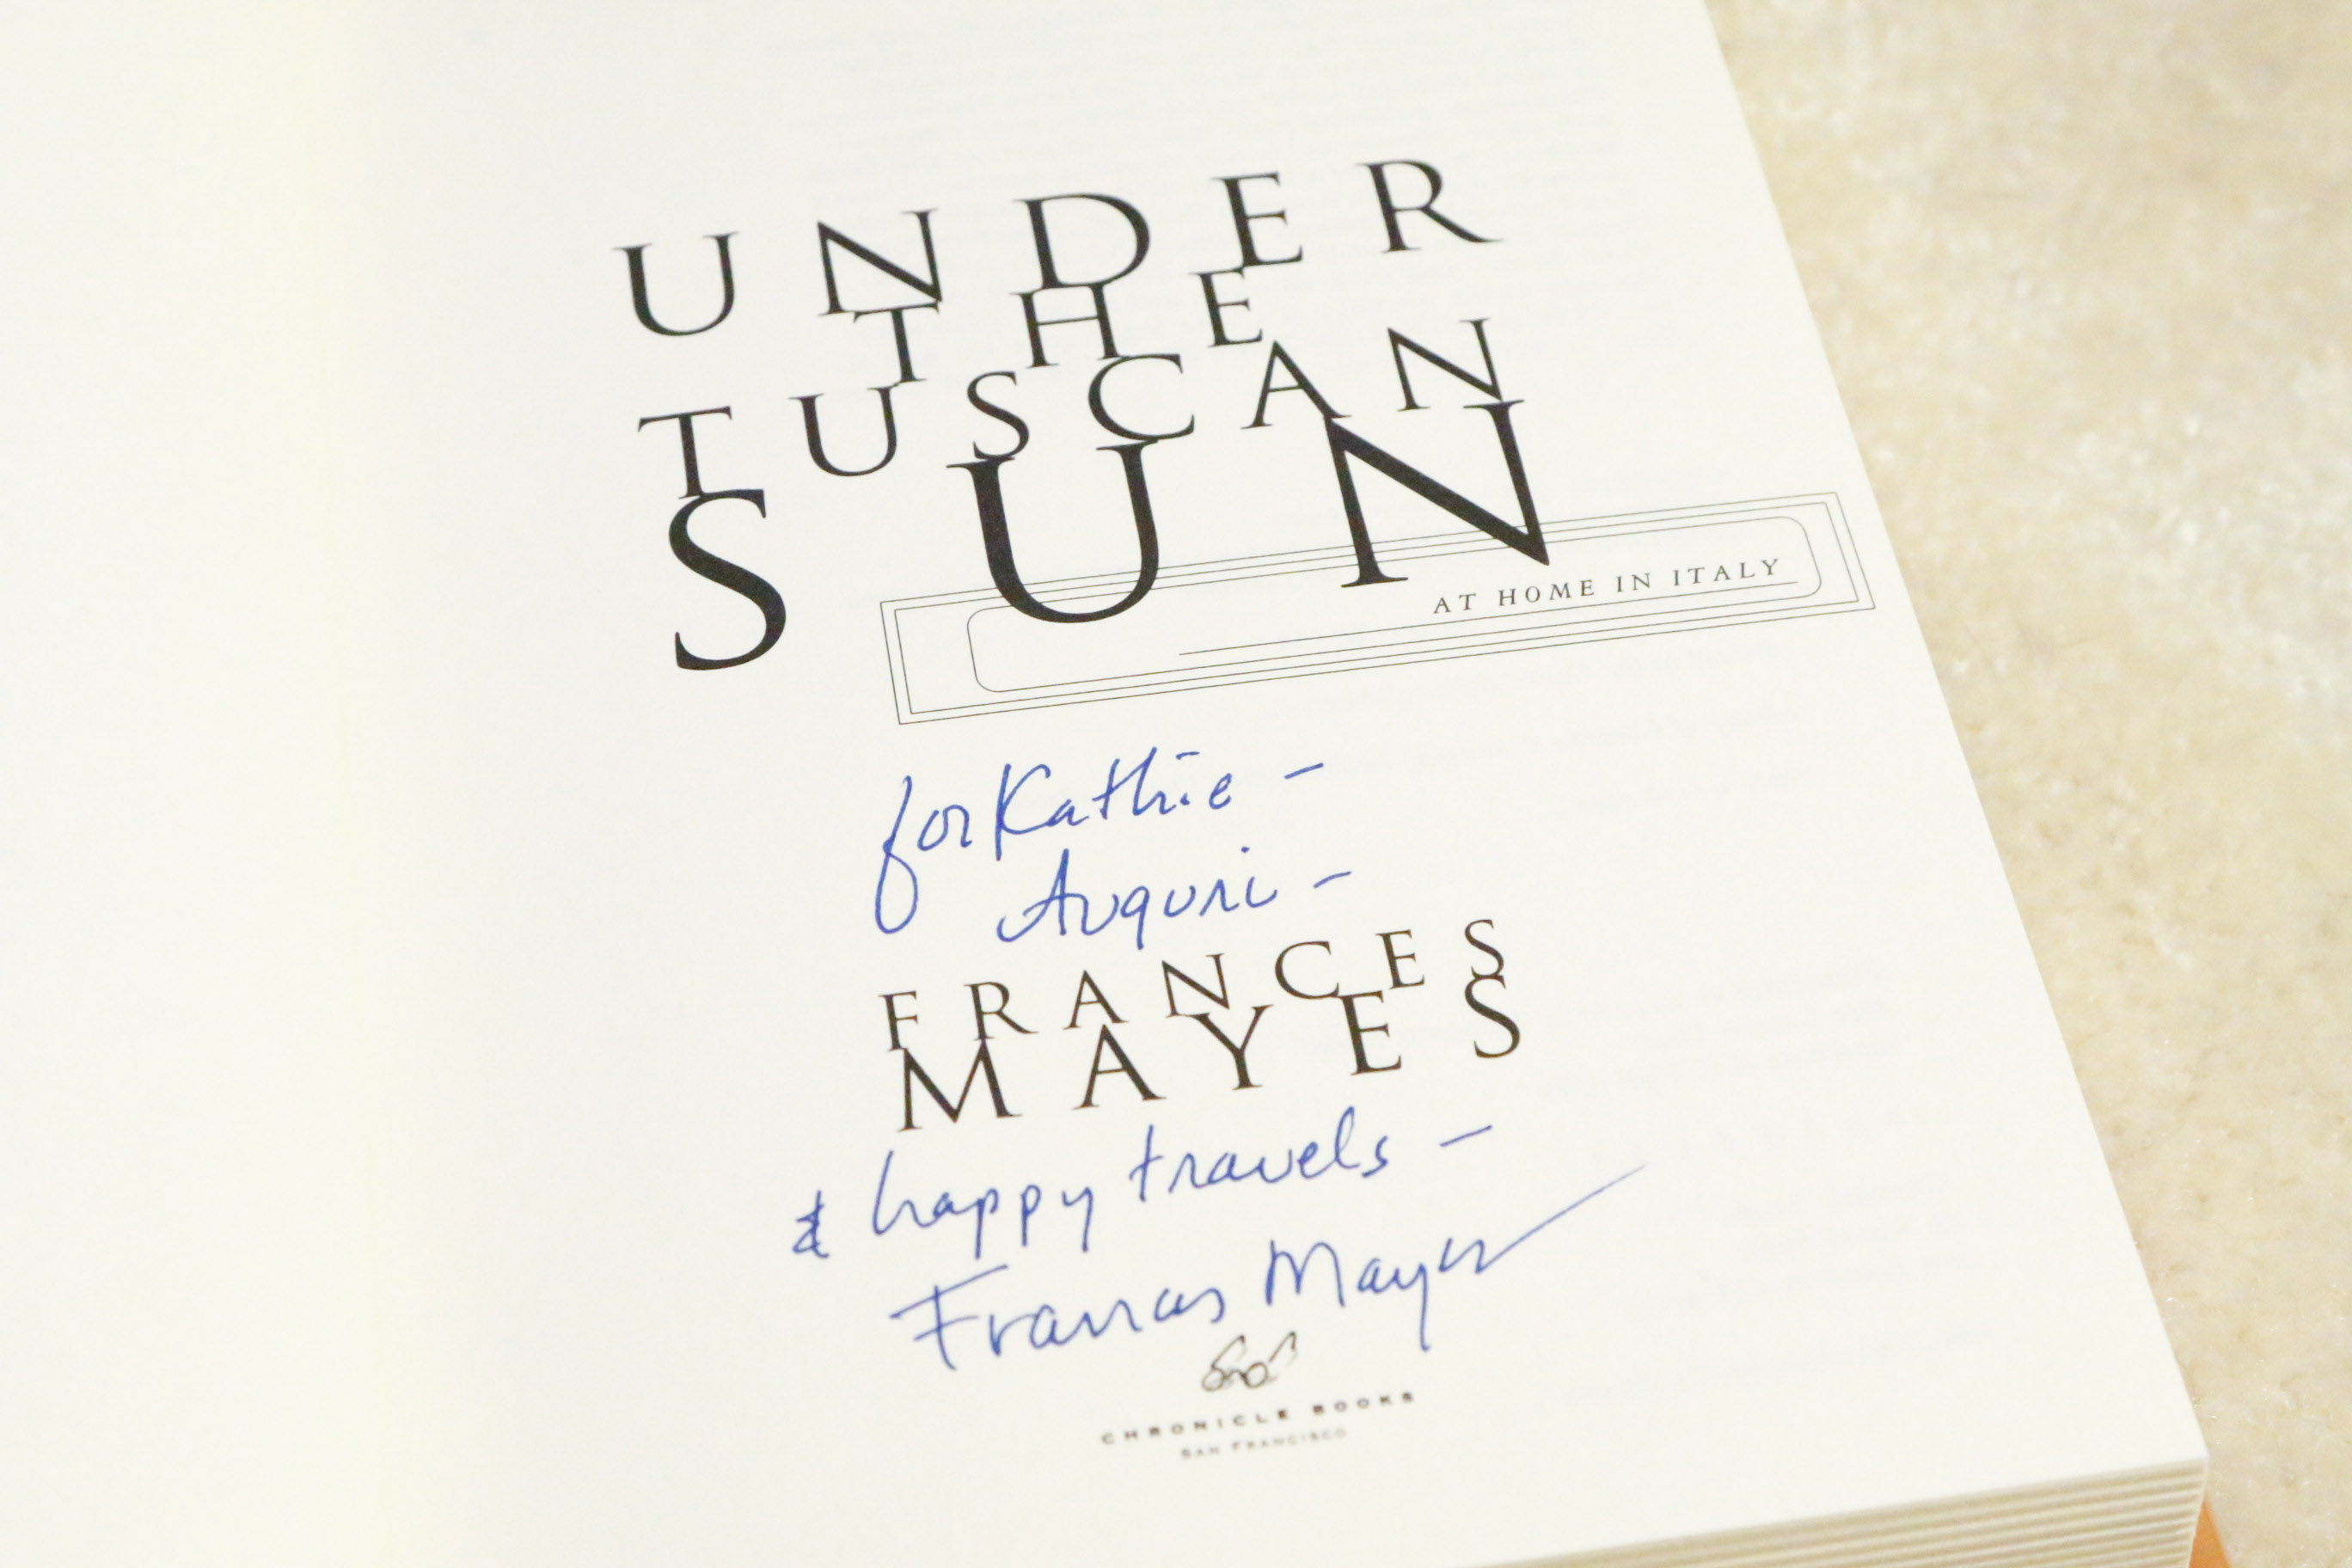 UNDER
THE
TUSCAN
SUN
AT HOME IN ITALY
for Kathie -
Auguri -
FRANCES
MAYES
& happy travels -
Frances Mayes
CHRONICLE BOOKS
SAN FRANCISCO